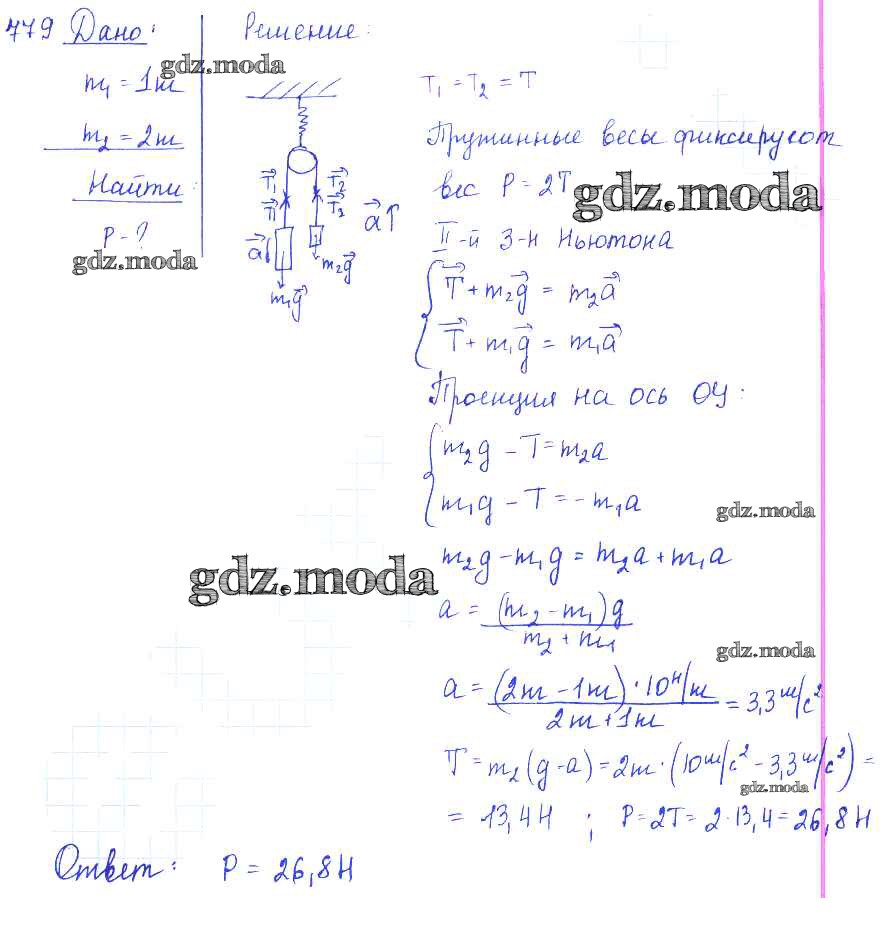 779 Дано:
m₁ = 1 кг
m₂ = 2 кг
Найти:
P - ?
gdz.moda
Решение:
gdz.moda
T₁
T₂
T₁
T₂
a
a↑
m₂g
m₁g
T₁ = T₂ = T
Пружинные весы фиксируют
вес P = 2T
gdz.moda
II-й З-н Ньютона
T + m₂g = m₂a
T + m₁g = m₁a
Проекция на ось OY:
m₂g - T = m₂a
m₁g - T = - m₁a
gdz.moda
m₂g - m₁g = m₂a + m₁a
gdz.moda
a = (m₂ - m₁)g / m₂ + m₁
gdz.moda
a = (2кг - 1кг) · 10 Н/кг / 2кг + 1кг = 3,3 м/с²
T = m₂(g - a) = 2кг · (10 м/с² - 3,3 м/с²) =
gdz.moda
= 13,4 Н ; P = 2T = 2 · 13,4 = 26,8 Н
Ответ: P = 26,8 Н